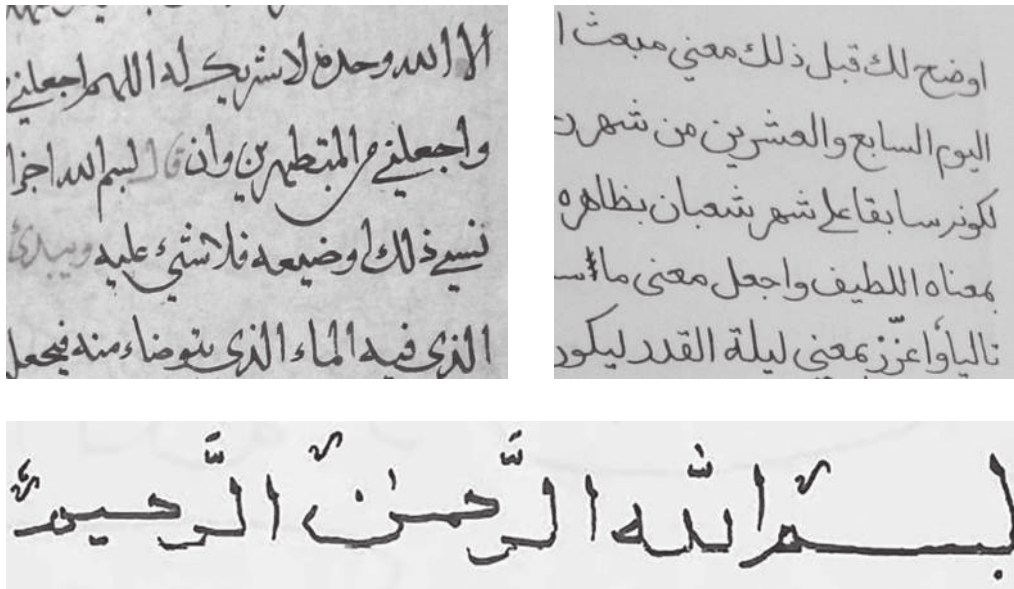 الا الله وحده لا شريك له اللهم اجعلني
واجعلني من المتطهرين وان قال بسم الله اجزا
نسي ذلك او ضيعه فلا شيء عليه ويبدئ
الذى فيه الماء الذى يتوضاء منه فيجعل
اوضح لك قبل ذلك معني مبعث ا
اليوم السابع والعشرين من شهر
لكونه سابقا على شهر شعبان بظاهره
بمعناه اللطيف واجعل معنى ما
تاليا واعزّز بمعني ليلة القدر ليكو
بسم اللّه الرّحمٰن الرّحيم